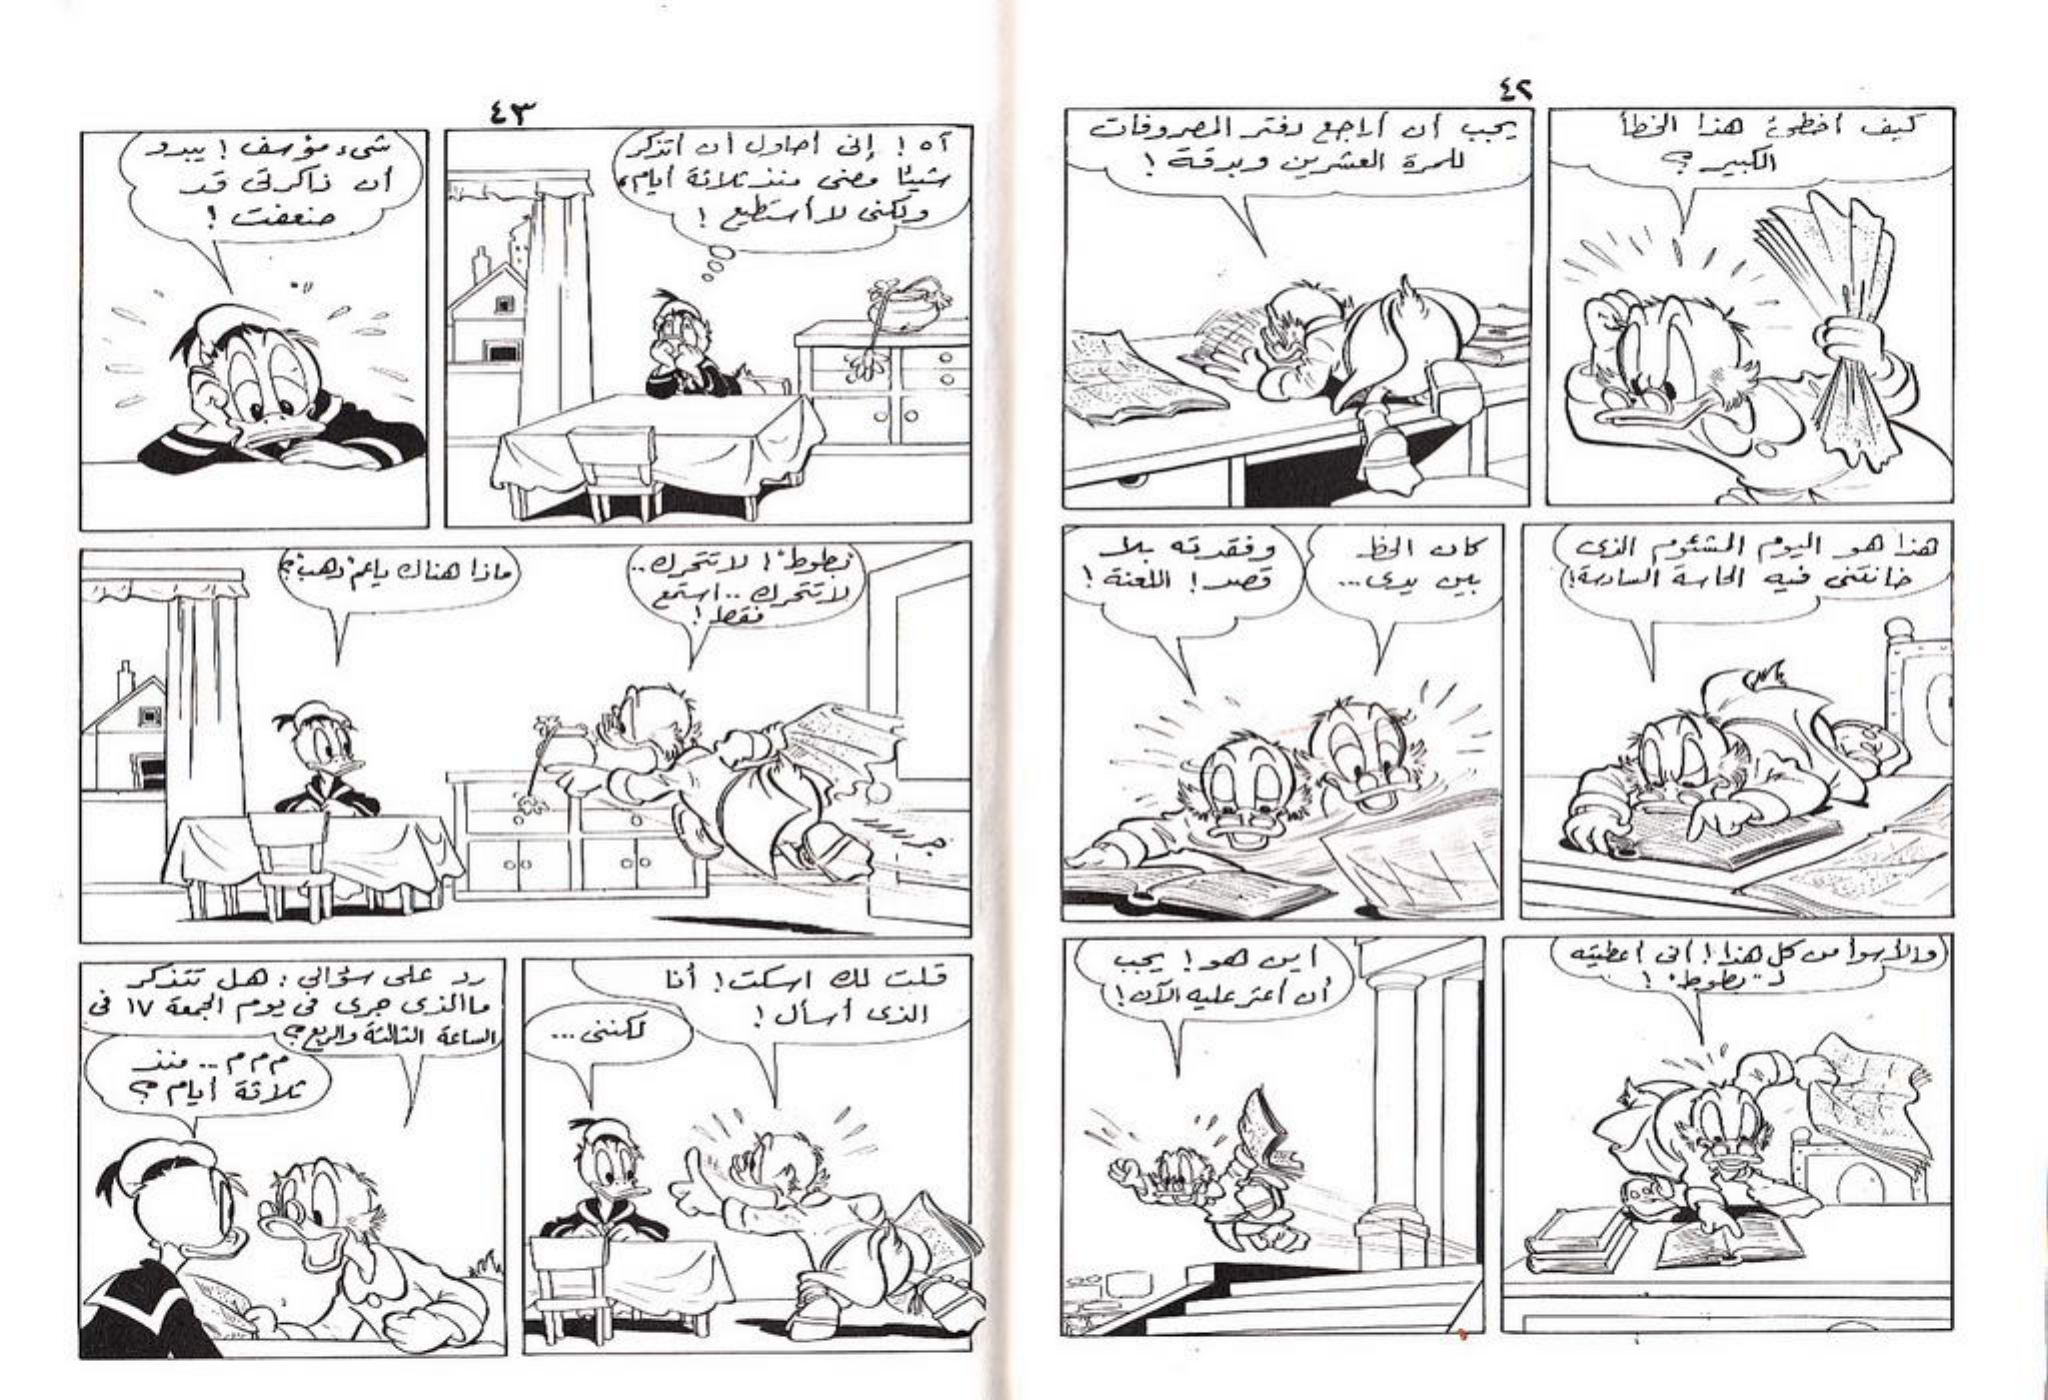 ٤٢
كيف أخطئ هذا الخطأ
الكبير؟
يجب أن أراجع دفتر المصروفات
للمرة العشرين وبدقة !
هذا هو اليوم المشئوم الذى
خانتنى فيه الحاسة السادسة!
كان الحظ
بين يدى...
وفقدته بلا
قصد ! اللعنة !
والأسوأ من كل هذا ! أنى أعطيته
لـ "بطوط" !
أين هو ! يجب
أن أعثر عليه الآن !
٤٣
آه ! إنى أحاول أن أتذكر
شيئا مضى منذ ثلاثة أيام،
ولكنى لا أستطيع !
شىء مؤسف ! يبدو
أن ذاكرتى قد
ضعفت !
"بطوط" ! لا تتحرك ..
لا تتحرك .. استمع
فقط !
ماذا هناك يا عم "دهب"؟
جررررر
قلت لك اسكت ! أنا
الذى أسأل !
لكننى ...
رد على سؤالي : هل تتذكر
ما الذى جرى فى يوم الجمعة ١٧ فى
الساعة الثالثة والربع؟
م م م .. منذ
ثلاثة أيام ؟